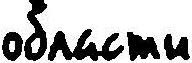 области